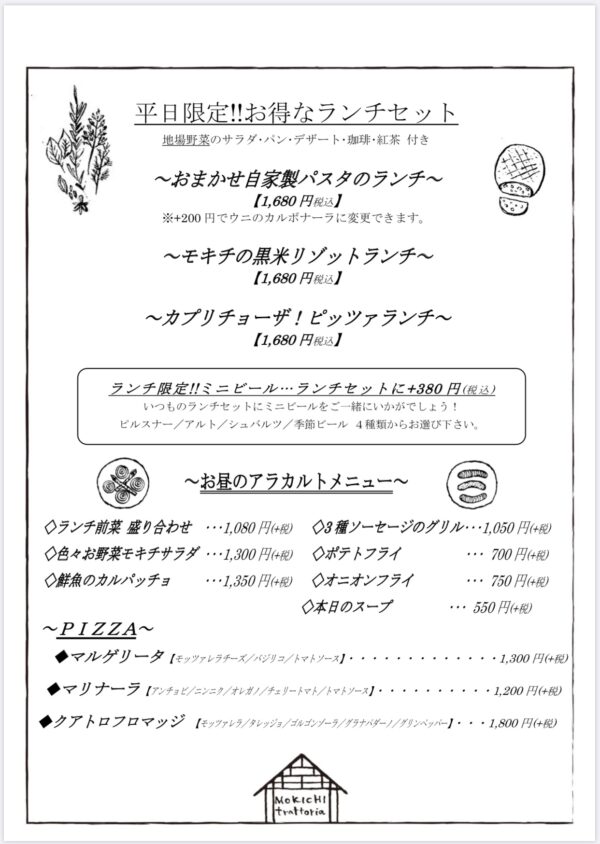 平日限定!!お得なランチセット
地場野菜のサラダ・パン・デザート・珈琲・紅茶 付き
～おまかせ自家製パスタのランチ～
【1,680 円税込】
※+200 円でウニのカルボナーラに変更できます。
～モキチの黒米リゾットランチ～
【1,680 円税込】
～カプリチョーザ！ピッツァランチ～
【1,680 円税込】
ランチ限定!!ミニビール…ランチセットに+380 円(税込)
いつものランチセットにミニビールをご一緒にいかがでしょう！
ピルスナー／アルト／シュバルツ／季節ビール ４種類からお選び下さい。
～お昼のアラカルトメニュー～
◇ランチ前菜 盛り合わせ ･･･1,080 円(+税)
◇色々お野菜モキチサラダ ･･･1,300 円(+税)
◇鮮魚のカルパッチョ ･･･1,350 円(+税)
◇3 種ソーセージのグリル･･･1,050 円(+税)
◇ポテトフライ ･･･ 700 円(+税)
◇オニオンフライ ･･･ 750 円(+税)
◇本日のスープ ･･･ 550 円(+税)
～ＰＩＺＺＡ～
◆マルゲリータ【モッツァレラチーズ／バジリコ／トマトソース】・・・・・・・・・・・・・1,300 円(+税)
◆マリナーラ【アンチョビ／ニンニク／オレガノ／チェリートマト／トマトソース】・・・・・・・・・・1,200 円(+税)
◆クアトロフロマッジ 【モッツァレラ／タレッジョ／ゴルゴンゾーラ／グラナパダーノ／グリンペッパー】・・・1,800 円(+税)
MOKICHI
trattoria